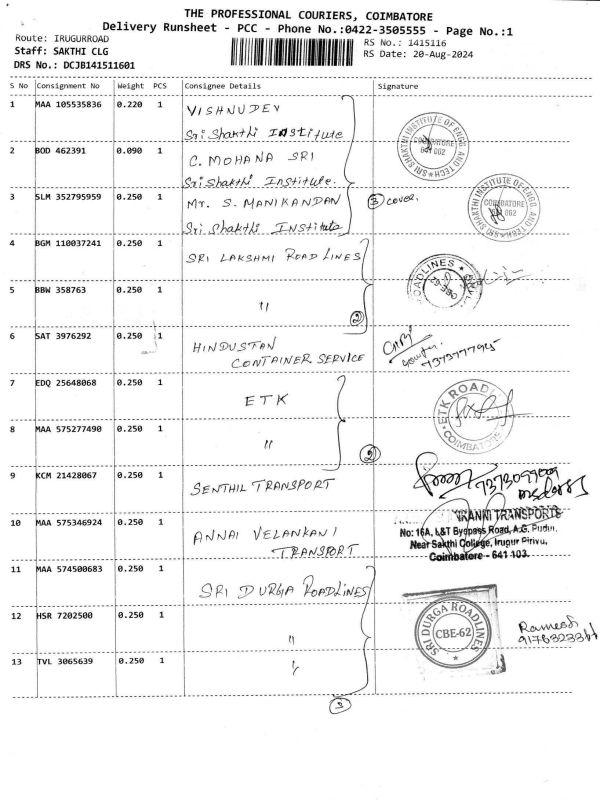 THE PROFESSIONAL COURIERS, COIMBATORE
Delivery Runsheet - PCC - Phone No.:0422-3505555 - Page No.:1
Route: IRUGURROAD
RS No.: 1415116
Staff: SAKTHI CLG
RS Date: 20-Aug-2024
DRS No.: DCJB141511601
S No Consignment No Weight PCS Consignee Details Signature
1 MAA 105535836 0.220 1 VISHNUDEV
Sri Shakthi Institute
2 BOD 462391 0.090 1 C. MOHANA SRI
Sri Shakthi Institute.
3 SLM 352795959 0.250 1 Mr. S. MANIKANDAN
Sri Shakthi Institute
3 cover
4 BGM 110037241 0.250 1 SRI LAKSHMI ROAD LINES
5 BBW 358763 0.250 1 "
2
6 SAT 3976292 0.250 1 HINDUSTAN
CONTAINER SERVICE
7 EDQ 25648068 0.250 1 ETK
ETK ROADLINES
COIMBATORE
8 MAA 575277490 0.250 1 "
2
9 KCM 21428067 0.250 1 SENTHIL TRANSPORT
10 MAA 575346924 0.250 1 ANNAI VELANKANI
TRANSPORT
TRANSPORTS
No: 16A, L&T Byepass Road, A.G. Pudur,
Near Sakthi College, Irugur Pirivu,
Coimbatore - 641 103.
11 MAA 574500683 0.250 1 SRI DURGA ROADLINES
SRI DURGA ROADLINES
CBE-62
Ramesh
12 HSR 7202500 0.250 1 "
13 TVL 3065639 0.250 1 "
3